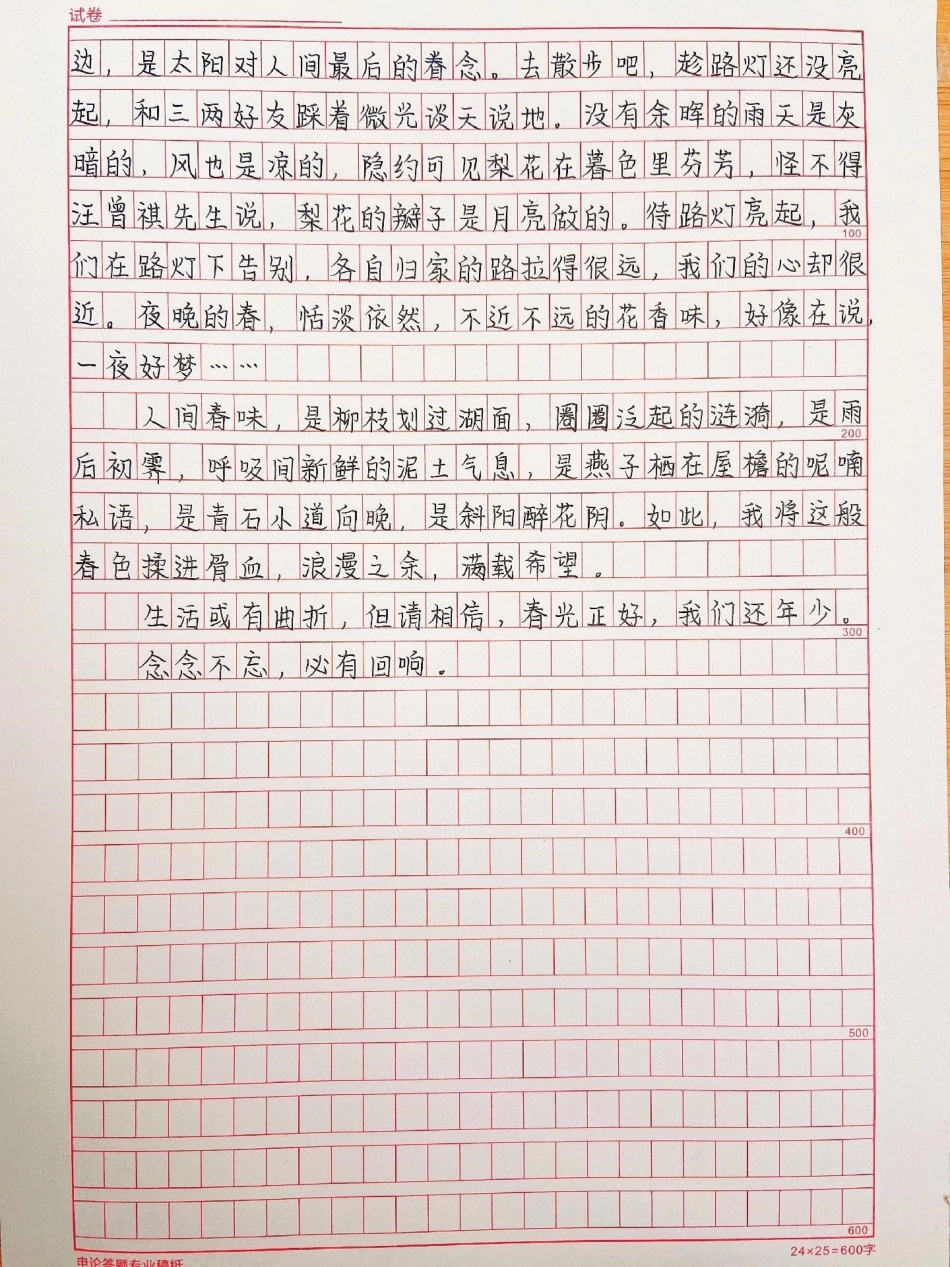 试卷
边，是太阳对人间最后的眷念。去散步吧，趁路灯还没亮
起，和三两好友踩着微光谈天说地。没有余晖的雨天是灰
暗的，风也是凉的，隐约可见梨花在暮色里芬芳，怪不得
汪曾祺先生说，梨花的瓣子是月亮做的。待路灯亮起，我
100
们在路灯下告别，各自归家的路拉得很远，我们的心却很
近。夜晚的春，恬淡依然，不近不远的花香味，好像在说，
一夜好梦……
人间春味，是柳枝划过湖面，圈圈泛起的涟漪，是雨
200
后初霁，呼吸间新鲜的泥土气息，是燕子栖在屋檐的呢喃
私语，是青石小道向晚，是斜阳醉花阴。如此，我将这般
春色揉进骨血，浪漫之余，满载希望。
生活或有曲折，但请相信，春光正好，我们还年少。
300
念念不忘，必有回响。
400
500
600
申论答题专业稿纸
24×25=600字